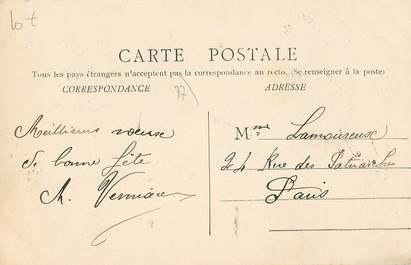 lot
CARTE POSTALE
Tous les pays étrangers n'acceptent pas la correspondance au recto. (Se renseigner à la poste)
CORRESPONDANCE
77)
ADRESSE
Meilleurs voeux
de bonne fête
A.
Mme Lamoureux
24 Rue des Patriarches
Paris